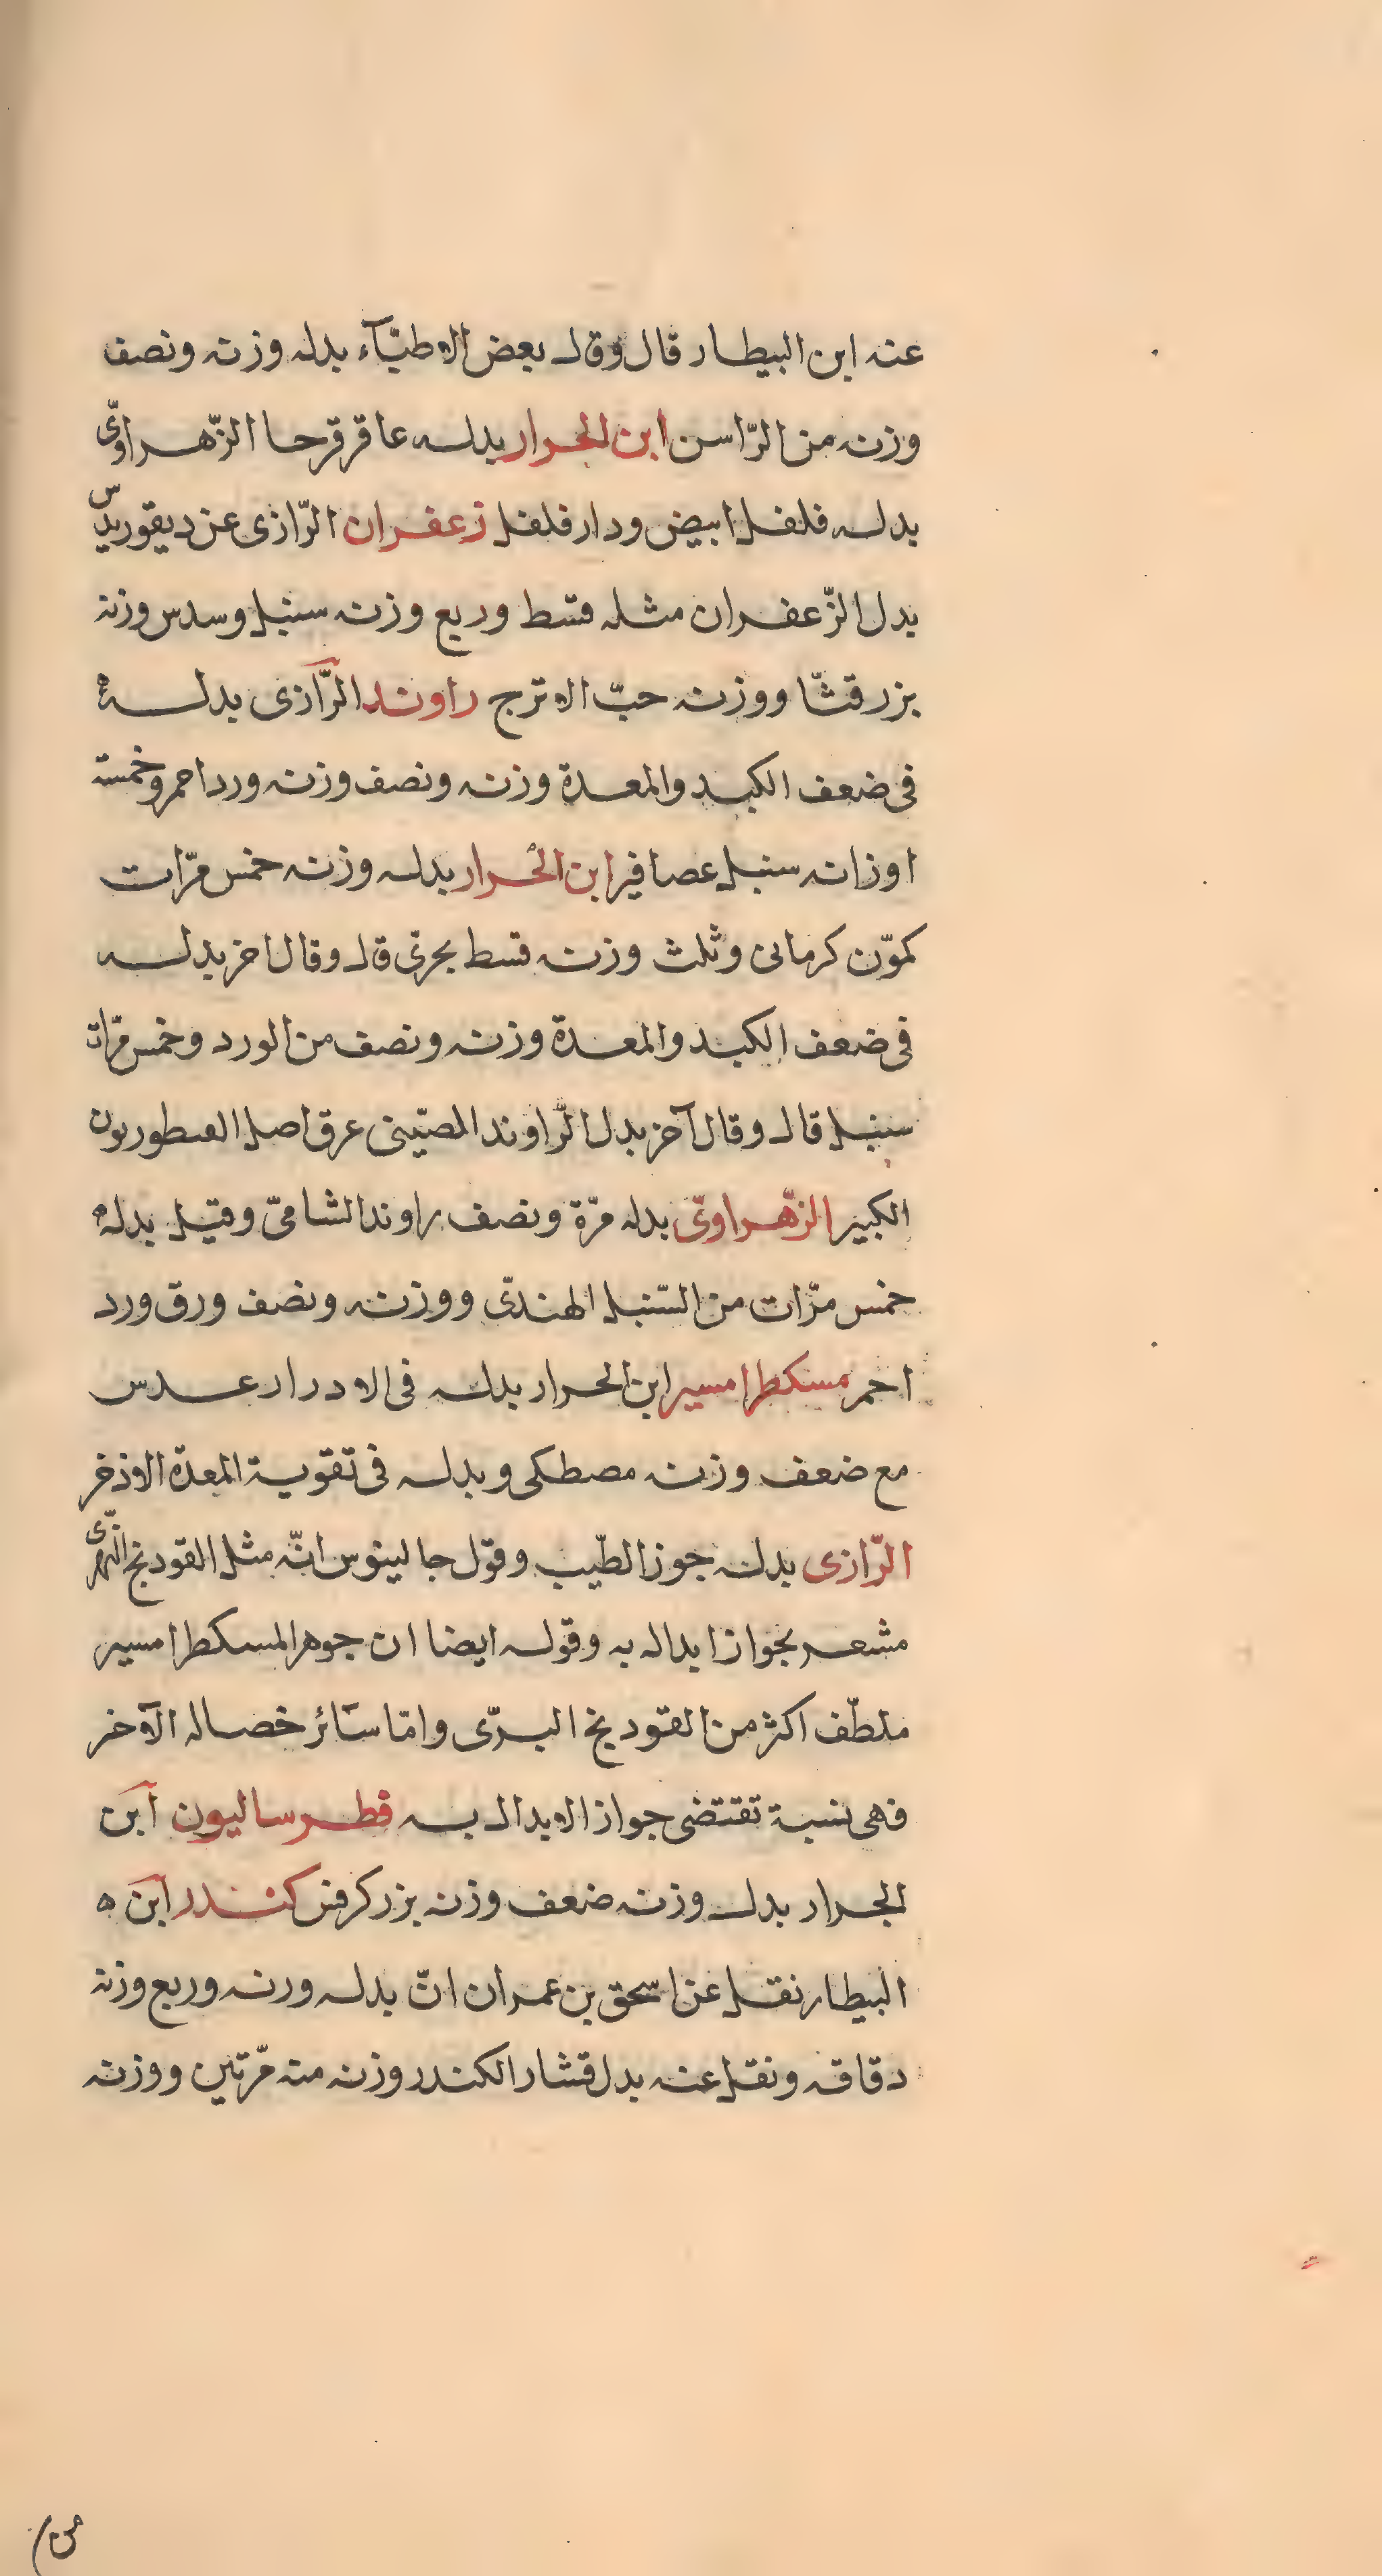 عنه ابن البيطار قال وقال بعض الاطبّآء بدله وزنه ونصف
وزنه من الرّاسن ابن الجرار بدله عاقرقرحا الزّهراوىّ
بدله فلفل ابيض ودارفلفل زعفران الرّازى عن ديقوريدس
بدل الزّعفران مثله قسط وربع وزنه سنبل وسدس وزنه
بزر قثّا ووزنه حبّ الاترج راوند الرّازى بدله
فى ضعف الكبد والمعدة وزنه ونصف وزنه ورد احمر وخمسة
اوزانه سنبل عصافير ابن الحرار بدله وزنه خمس مرّات
كموّن كرمانى وثلث وزنه قسط بحرىّ قال وقال اخر بدله
فى ضعف الكبد والمعدة وزنه ونصف من الورد وخمس مرّات
سنبل قال وقال آخر بدل الرّاوند الصيّنى عرق اصل القنطوريون
الكبير الزّهراوىّ بدله مرّة ونصف راوند الشامىّ وقيل بدله
خمس مرّات من السّنبل الهندىّ ووزنه ونصف ورق ورد
احمر مسكطرامسير ابن الحرار بدله فى الادرار عدس
مع ضعف وزنه مصطكى وبدله فى تقوية المعدة الاذخر
الرّازى بدله جوز الطّيب وقول جالينوس انّه مثل الفودنج النهرىّ
مشعر بجواز ابداله به وقوله ايضا ان جوهر المسكطرامسير
ملطّف اكثر من الفودنج البرّى وامّا سآئر خصاله الآخر
فهى نسبة تقتضى جواز الابدال به فطرساليون ابن
الجرار بدل وزنه ضعف وزنه بزر كرفس كندر ابن
البيطار نقل عن اسحق بن عمران انّ بدله ورنه وربع وزنه
دقاقه ونقل عنه بدل قشار الكندر وزنه منه مرّتين ووزنه